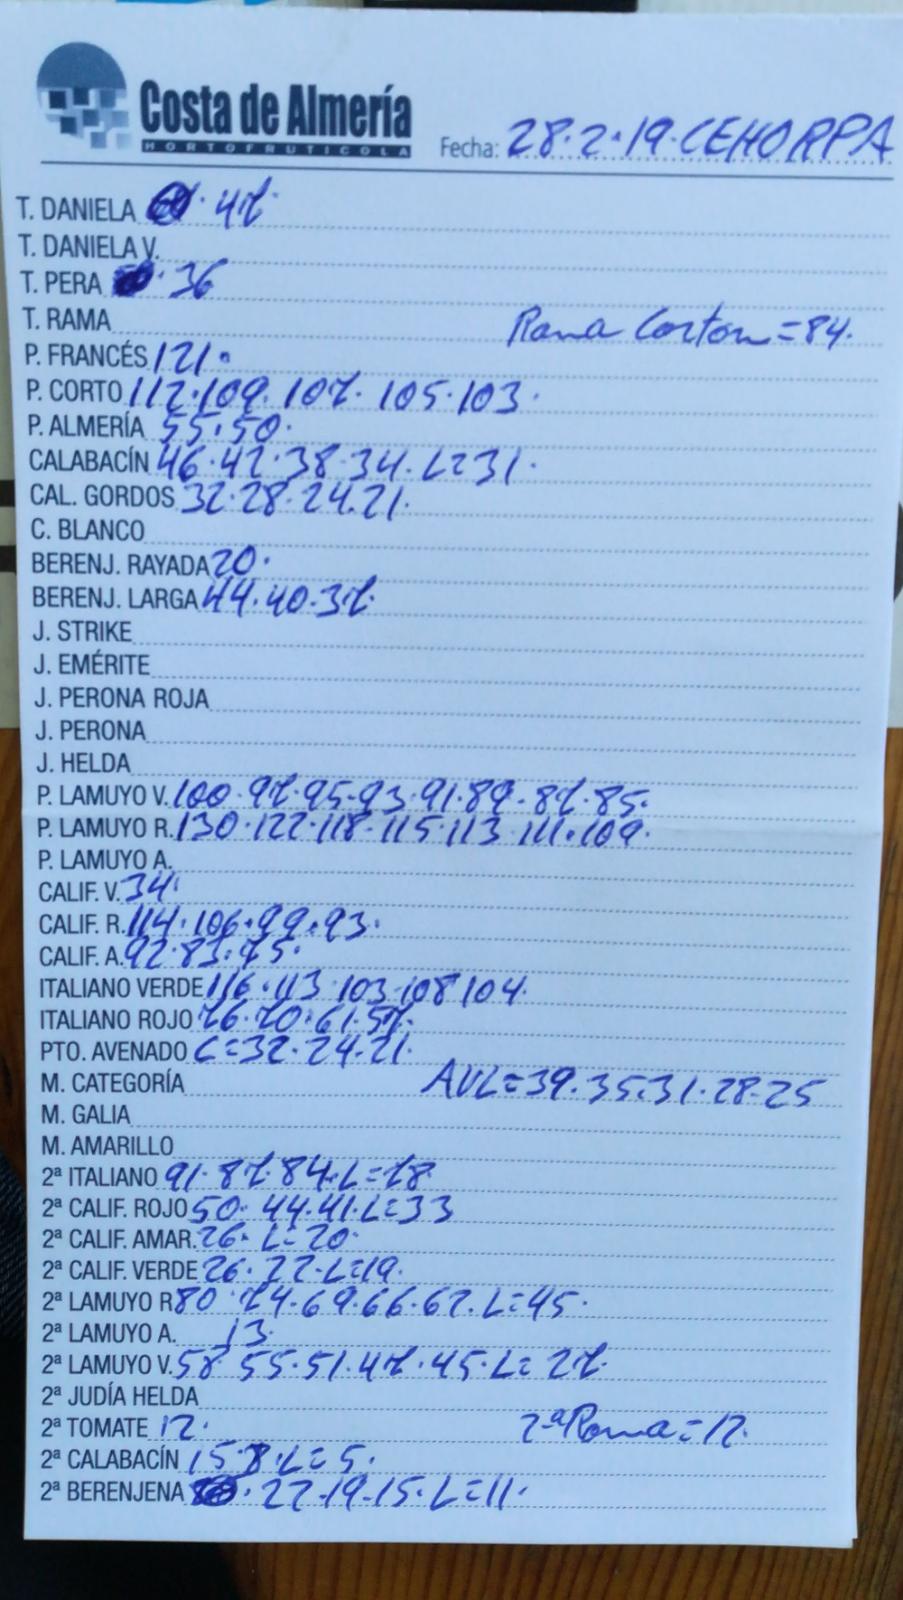 Costa de Almería
HORTOFRUTICOLA
Fecha: 28·2·19·CEHORPA
T. DANIELA · 47·
T. DANIELA V.
T. PERA · 36
T. RAMA
Rama Corton=84·
P. FRANCÉS 121·
P. CORTO 112·109·107· 105·103·
P. ALMERÍA 55·50·
CALABACÍN 46·42·38·34·L=31·
CAL. GORDOS 32·28·24·21·
C. BLANCO
BERENJ. RAYADA 20·
BERENJ. LARGA 44·40·37·
J. STRIKE
J. EMÉRITE
J. PERONA ROJA
J. PERONA
J. HELDA
P. LAMUYO V. 100·97·95·93·91·89·87·85·
P. LAMUYO R. 130·122·118·115·113·111·109·
P. LAMUYO A.
CALIF. V. 34·
CALIF. R. 114·106·99·93·
CALIF. A. 92·83·75·
ITALIANO VERDE 116·113 103·108 104·
ITALIANO ROJO 76·70·61·57·
PTO. AVENADO L=32·24·21·
M. CATEGORÍA
AVL=39·35·31·28·25
M. GALIA
M. AMARILLO
2ª ITALIANO 91·87·84·L=78·
2ª CALIF. ROJO 50·44·41·L=33
2ª CALIF. AMAR. 26· L=20·
2ª CALIF. VERDE 26·22·L=19·
2ª LAMUYO R 80·74·69·66·62·L=45·
2ª LAMUYO A. 13·
2ª LAMUYO V. 58 55·51·47·45·L=27·
2ª JUDÍA HELDA
2ª TOMATE 12·
2ªRama=12·
2ª CALABACÍN 15·8·L=5·
2ª BERENJENA · 22·19·15·L=11·